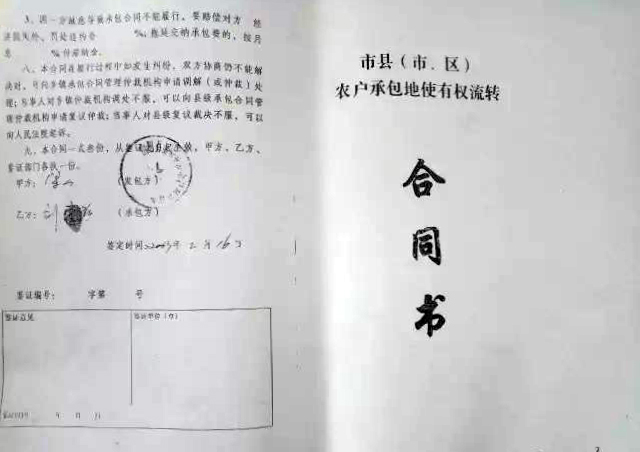 3、因一方疏忽导致承包合同不能履行，要赔偿对方 经
济损失外，罚处违约金 %。拖延交纳承包费的，按月
息 %付滞纳金。
八、本合同在履行过程中如发生纠纷，双方协商仍不能解
决时，可向乡镇承包合同管理仲裁机构申请调解（或仲裁）处
理；当事人对乡镇仲裁机构调处不服，可以向县级承包合同管
理仲裁机构申请复议仲裁；当事人对县级复议裁决不服，可以
向人民法院起诉。
九、本合同一式叁份，从签证之日起生效，甲方、乙方、
鉴证部门各执一份。
甲方： （发包方）
乙方： （承包方）
签定时间：2003年2月16日
鉴证编号： 字第 号
鉴证意见 鉴证单位（章）
年 月 日
市县（市、区）
农户承包地使有权流转
合同书